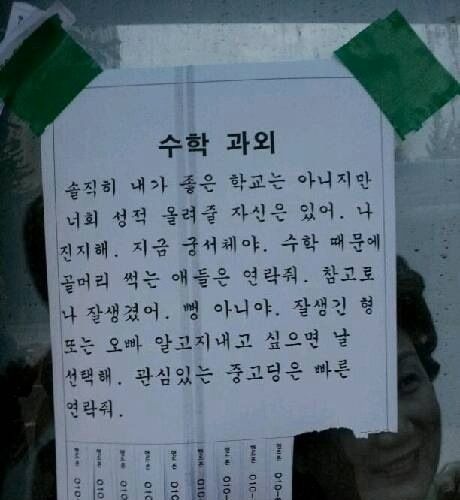 수학 과외
솔직히 내가 좋은 학교는 아니지만
너희 성적 올려줄 자신은 있어. 나
진지해. 지금 궁서체야. 수학 때문에
골머리 썩는 애들은 연락줘. 참고로
나 잘생겼어. 뻥 아니야. 잘생긴 형
또는 오빠 알고지내고 싶으면 날
선택해. 관심있는 중고딩은 빠른
연락줘.
핸드폰 010-
핸드폰 010
핸드폰 010
핸드폰 010
핸드폰 010-
핸드폰 010-
핸드폰 010-
핸드폰 010-